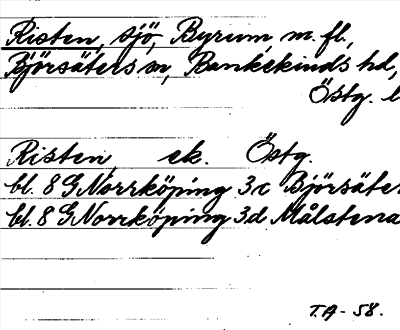 Risten, sjö, Byrum m.fl.,
Björsäters sn, Bankekinds hd,
Östg. l
Risten, ek. Östg.
bl. 8 G Norrköping 3c Björsäte
bl. 8 G Norrköping 3d Målstena
T.A-58.